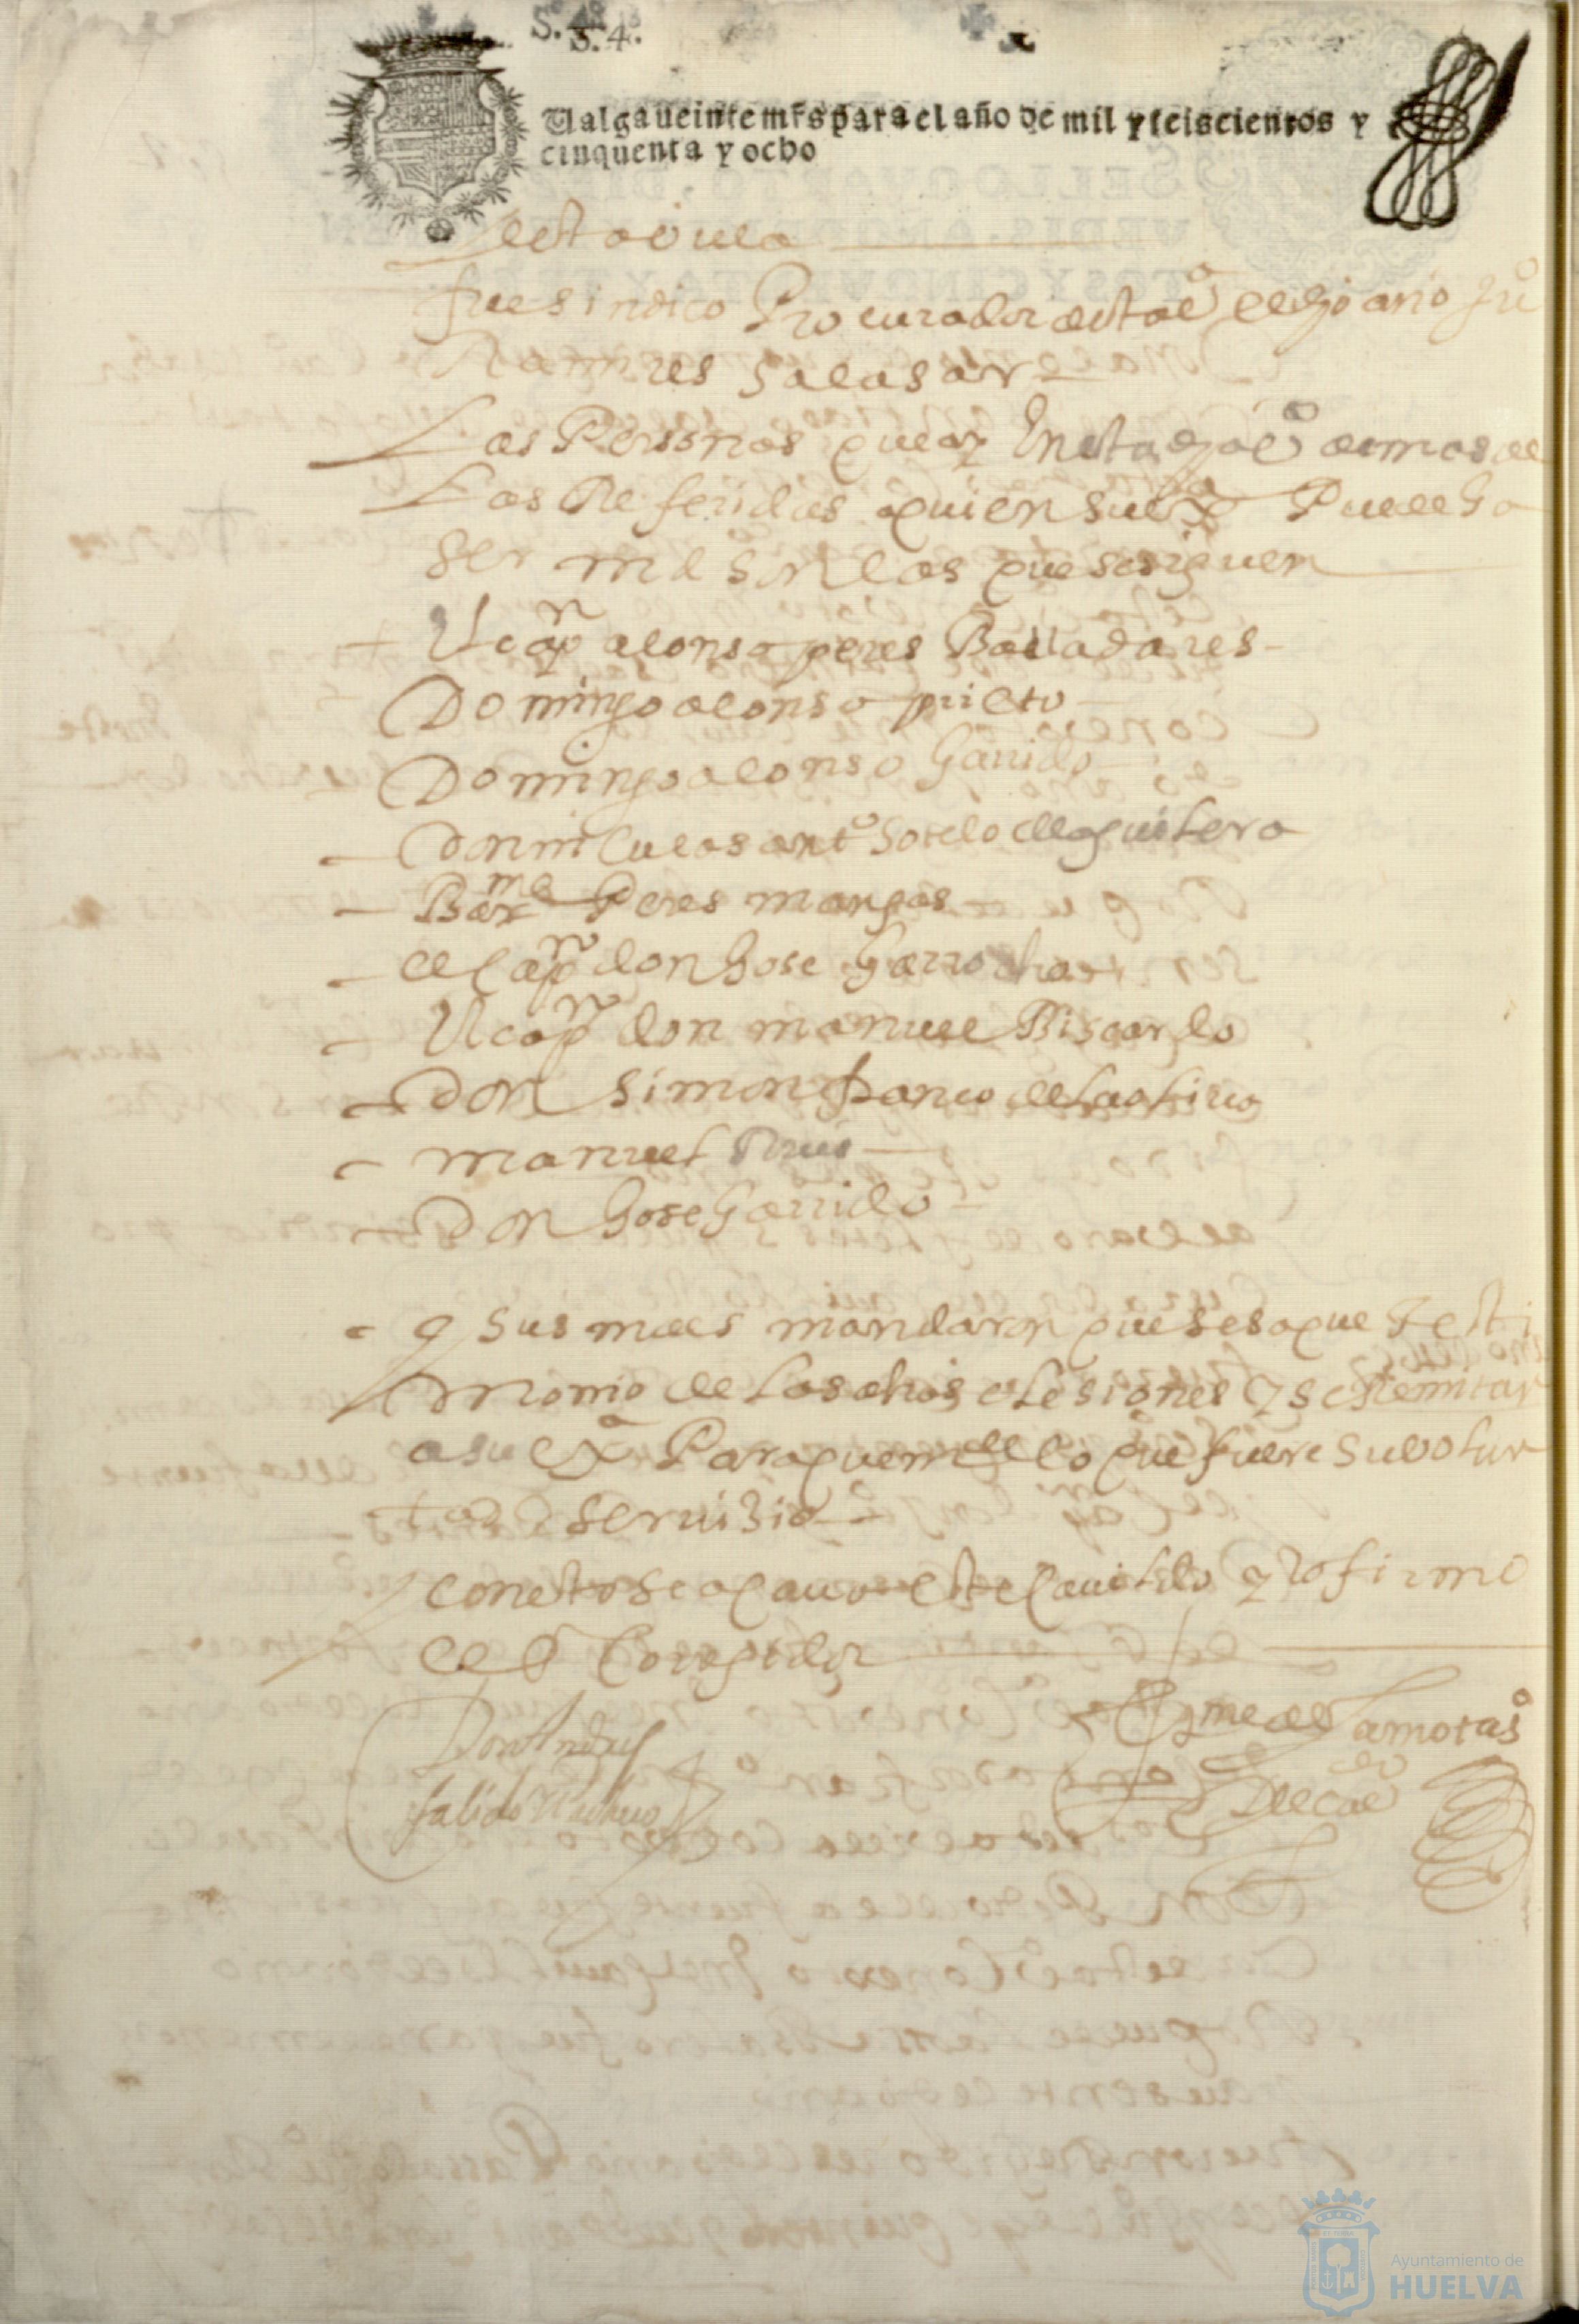 S. 4º
S. 4º.
Valga veinte mrs para el año de mil y seiscientos y
cinquenta y ocho
desta villa
fue sindico Procurador desta vª el dho año juº
Ramires Salasar
Las Personas que ay En esta dha vª demas de
Las Referidas a quien su exª Puede ha
ser md son las que se siguen
El capn alonso peres Balladares
Domingo alonso prieto
Domingo alonso Garrido
Don niculas antº Sotelo de aguilera
Barme Peres mangas
el Capn don Jose Garrocho
El capn don manuel Bisardo
Don Simon franco de
manuel Ruis
Don Jose Garrido
y sus mdes mandaron que se saque testi
monio de las dhas elesiones y se Remitan
a su exª Para que mde lo que fuere su volun
tad servisio
con esto se acavo este Cavildo y lo firmo
el Sr Corregidor
Don Andres
salido
Jme de Lamora
Ayuntamiento de
HUELVA